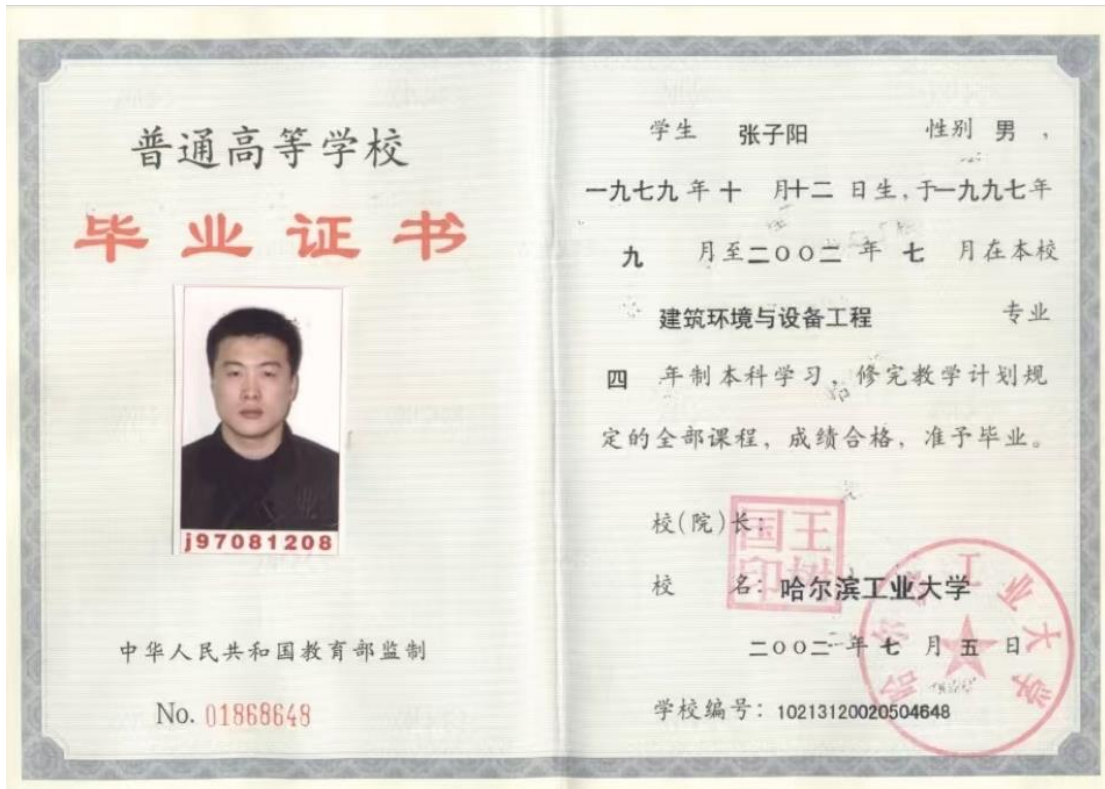 普通高等学校
毕业证书
j97081208
中华人民共和国教育部监制
No. 01868648
学生 张子阳 性别 男，
一九七九年十月十二日生，于一九九七年
九月至二〇〇二年七月在本校
建筑环境与设备工程 专业
四年制本科学习，修完教学计划规
定的全部课程，成绩合格，准予毕业。
校(院)长：
国王
印树
校名：哈尔滨工业大学
哈尔滨工业大学
二〇〇二年七月五日
学校编号：10213120020504648